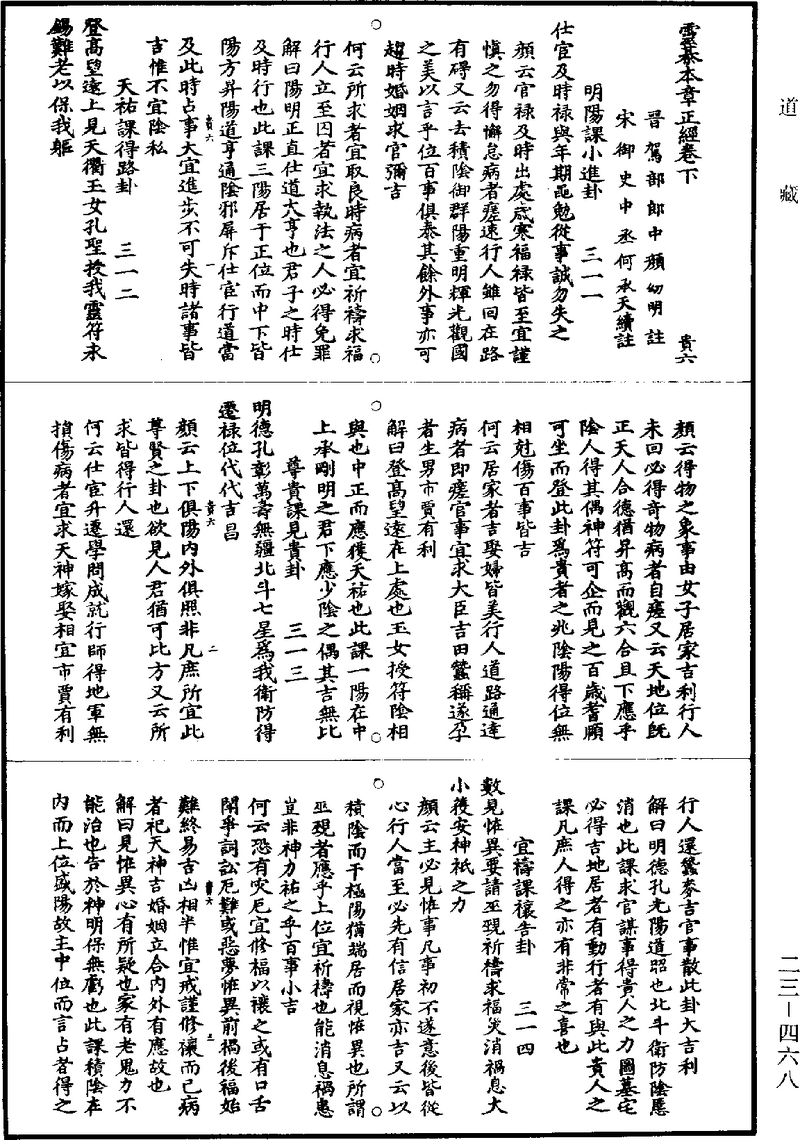 道藏
靈棊本章正經卷下
貴六
晉駕部郎中顏幼明註
宋御史中丞何承天續註
明陽課小進卦 三一一
仕官及時祿與年期黽勉從事誠勿失之
顏云官祿及時出處歲寒福祿皆至宜謹
慎之勿得懈怠病者瘥速行人雖回在路
有碍又云去積陰御群陽重明輝光觀國
之美以言乎位百事俱泰其餘外事亦可
趨時婚姻求官彌吉
何云所求者宜取良時病者宜祈禱求福
行人立至囚者宜求執法之人必得免罪
解曰陽明正直仕道大亨也君子之時仕
及時行也此課三陽居于正位而中下皆
陽方昇陽道亨通陰邪屏斥仕宦行道當
及此時占事大宜進步不可失時諸事皆
吉惟不宜陰私
天祐課得路卦 三一二
登高望遠上見天衢玉女孔聖授我靈符永
錫難老以保我軀
顏云得物之象事由女子居家吉利行人
未回必得奇物病者自瘥又云天地位既
正天人合德猶昇高而觀六合且下應乎
陰人得其偶神符可企而見之百歲耆頤
可坐而登此卦為貴者之兆陰陽得位無
相尅傷百事皆吉
何云居家者吉娶婦皆美行人道路通達
病者即瘥官事宜求大臣吉田蠶稱遂孕
者生男市賈有利
解曰登高望遠在上處也玉女授符陰相
與也中正而應獲天祐也此課一陽在中
上承剛明之君下應少陰之偶其吉無比
尊貴課見貴卦 三一三
明德孔彰萬壽無疆北斗七星為我衛防得
遷祿位代代吉昌
顏云上下俱陽內外俱照非凡庶所宜此
尊賢之卦也欲見人君猶可比方又云所
求皆得行人還
何云仕宦升遷學問成就行師得地軍無
損傷病者宜求天神嫁娶相宜市賈有利
行人還蠶麥吉官事散此卦大吉利
解曰明德孔光陽道昭也北斗衛防陰慝
消也此課求官謀事得貴人之力圖墓宅
必得吉地居者有動行者有與此貴人之
課凡庶人得之亦有非常之喜也
宜禱課禳告卦 三一四
數見怪異要請巫覡祈禱求福災消禍息大
小後安神祇之力
顏云主必見怪事凡事初不遂意後皆從
心行人當至必先有信居家亦吉又云以
積陰而干極陽猶端居而視怪異也所謂
巫覡者應乎上位宜祈禱也能消息禍患
豈非神力祐之乎百事小吉
何云恐有災厄宜修福以禳之或有口舌
鬪爭詞訟厄難或惡夢怪異前禍後福始
難終易吉凶相半惟宜戒謹修禳而已病
者祀天神吉婚姻立合內外有應故也
解曰見怪異心有所疑也家有老鬼力不
能治也告於神明保無虧也此課積陰在
內而上位盛陽故主中位而言占者得之
二三－四六八